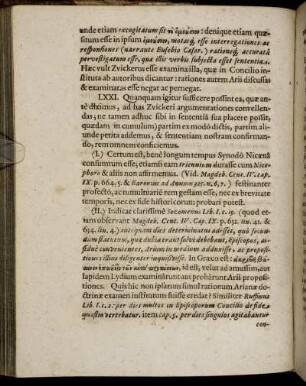 unde etiam excogitatum sit
: denique etiam quæ
situm esse in ipsum
, motasq, esse interrogationes ac
responsiones (narrante Eusebio Cæsar.) rationesq; accuratè
pervestigatum esse, quæ illis verbis subjecta esset sententia.
Hæc vult Zvickerus esse examina illa, quæ in Concilio in-
stituta ab autoribus dicantur: rationes autem Arii discussas
& examinatas esse negat ac pernegat.
LXXI. Quanquam igitur sufficere possint ea, quæ an-
tè diximus, ad has Zvickeri argumentationes convellen-
das, ne tamen sibi ab in sententia suæ placere possit,
quædam in cumulum partim ex modò dictis, partim ali-
unde petita addemus, & sententiam nostram confirman-
do, rem omnem conficiemus.
(I.) Certum est, benè longum tempus Synodo Nicænæ
consumtum esse; etiamsi eam triennium durasse cum Nice-
phoro & aliis non affirmemus. (Vid. Magdeb. Cent. IV. cap.
IX. p. 664, 5. & Baronius ad annum 325. n. 6, 7.) festinanter
profectò, ac tumultuariè rem gestam esse, nec ex brevitate
temporis, nec ex fide historicorum probari potest.
(II.) Indicat clarissimè Sozomenus Lib. I. c. 19. (quod et-
iam observant Magdeb. Cent. IV. Cap. IX. p. 632. lin. 41. &
634. lin. 4.) antequam dies determinatus adesset, quo secun-
dum pactum, quæ dictu
erant solvi debebant, Episcopos, ali-
 convenientes, Arium in medium adduxisse, ac propositio-
nes illius diligenter inquisivisse. In Græco est:

 id est, velut ad amussim, aut
lapidem Lydium examinârunt aut probârunt Arii proposi-
tiones. Quis hîc non ipsarum simul rationum Arianæ do-
ctrinæ examen institutum fuisse credat? Similiter Ruffinus
Lib. I. c. 2: per dies multos in Episcoporum Concilio de fide
quæstio vertebatur. item cap. 5. per dies singulos agitabantur
con-